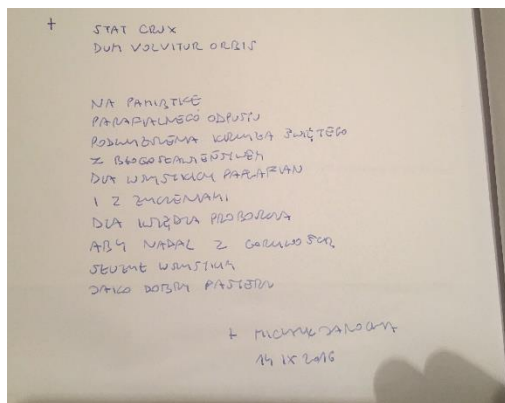 + STAT CRUX
DUM VOLVITUR ORBIS
NA PAMIĄTKĘ
PARAFIALNEGO ODPUSTU
PODWYŻSZENIA KRZYŻA ŚWIĘTEGO
Z BŁOGOSŁAWIEŃSTWEM
DLA WSZYSTKICH PARAFIAN
I Z ŻYCZENIAMI
DLA KSIĘDZA PROBOSZCZA
ABY NADAL Z GORLIWOŚCIĄ
SŁUŻYŁ WSZYSTKIM
JAKO DOBRY PASTERZ
+ MICHAŁ JANOCHA
14 IX 2016